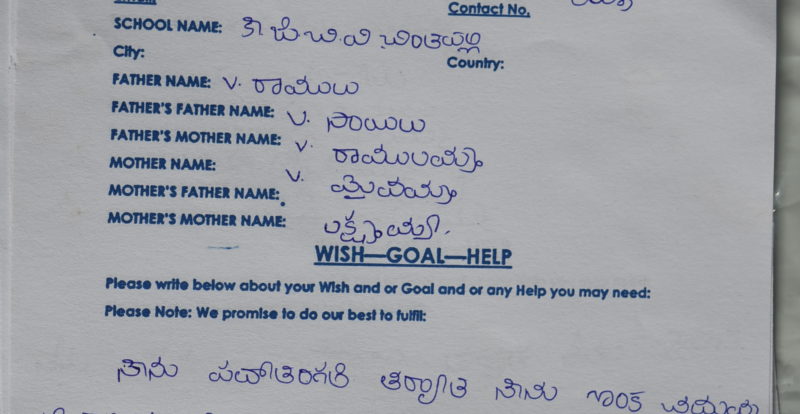 Contact No.
SCHOOL NAME: కె.జి.బి.వి చింతపల్లి
City:
Country:
FATHER NAME: V. రాములు
FATHER'S FATHER NAME: V. సాయిలు
FATHER'S MOTHER NAME: V. రాములమ్మ
MOTHER NAME: V.
MOTHER'S FATHER NAME:
MOTHER'S MOTHER NAME: లక్ష్మమ్మ.
WISH—GOAL—HELP
Please write below about your Wish and or Goal and or any Help you may need:
Please Note: We promise to do our best to fulfil:
నేను పదవతరగతి తర్వాత నేను ఇంకా